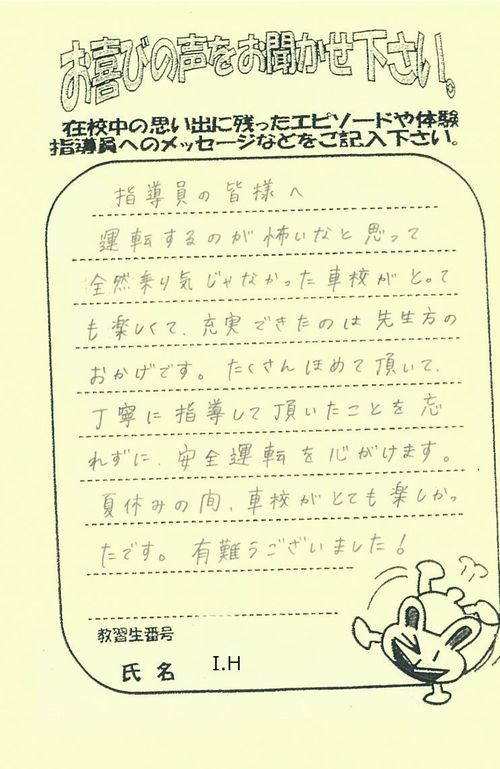 お喜びの声をお聞かせ下さい。
在校中の思い出に残ったエピソードや体験
指導員へのメッセージなどをご記入下さい。
指導員の皆様へ
運転するのが怖いなと思って
全然乗り気じゃなかった車校がとって
も楽しくて、充実できたのは先生方の
おかげです。たくさんほめて頂いて、
丁寧に指導して頂いたことを忘
れずに、安全運転を心がけます。
夏休みの間、車校がとても楽しかっ
たです。有難うございました!
教習生番号
氏名 I.H